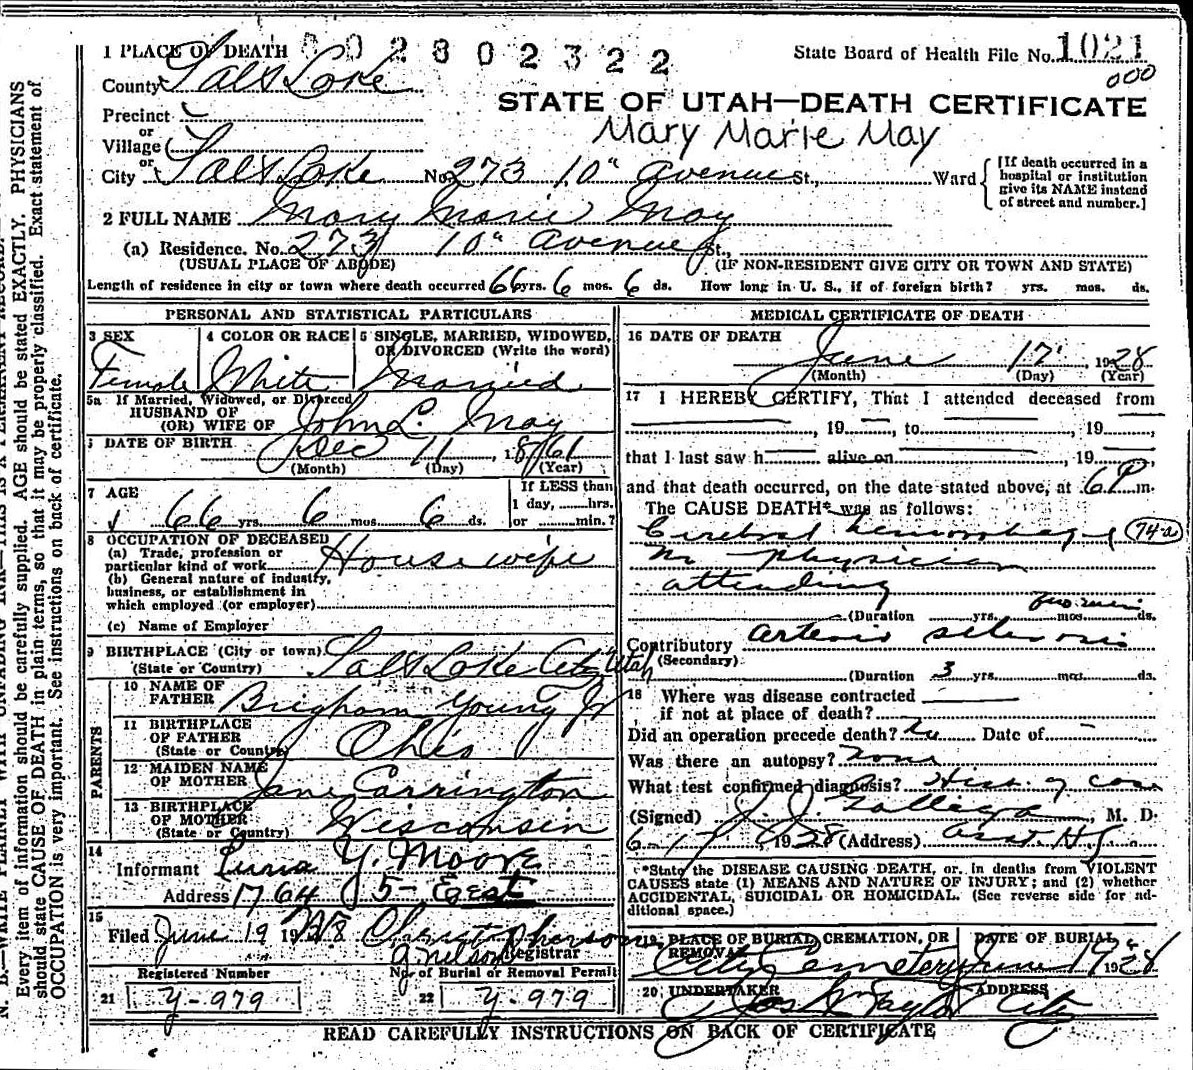 1 PLACE OF DEATH
002802322
State Board of Health File No. 1021
000
County Salt Lake
STATE OF UTAH—DEATH CERTIFICATE
Precinct
or
Mary Marie May
Village
or
City Salt Lake No. 273 10" Avenue St., Ward
[If death occurred in a
hospital or institution
give its NAME instead
of street and number.]
2 FULL NAME Mary Marie May
(a) Residence. No. 273 10" Avenue St.,
(USUAL PLACE OF ABODE) (IF NON-RESIDENT GIVE CITY OR TOWN AND STATE)
Length of residence in city or town where death occurred 66 yrs. 6 mos. 6 ds. How long in U. S., if of foreign birth? yrs. mos. ds.
PERSONAL AND STATISTICAL PARTICULARS
3 SEX
Female
4 COLOR OR RACE
White
5 SINGLE, MARRIED, WIDOWED,
OR DIVORCED (Write the word)
Married
5a If Married, Widowed, or Divorced
HUSBAND OF
(OR) WIFE OF John L. May
DATE OF BIRTH Dec 11, 1861
(Month) (Day) (Year)
7 AGE
66 yrs. 6 mos. 6 ds.
If LESS than
1 day, hrs.
or min.?
8 OCCUPATION OF DECEASED
(a) Trade, profession or
particular kind of work Housewife
(b) General nature of industry,
business, or establishment in
which employed (or employer)
(c) Name of Employer
9 BIRTHPLACE (City or town)
(State or Country) Salt Lake City Utah
PARENTS
10 NAME OF
FATHER Brigham Young Jr
11 BIRTHPLACE
OF FATHER
(State or Country) Ohio
12 MAIDEN NAME
OF MOTHER Jane Carrington
13 BIRTHPLACE
OF MOTHER
(State or Country) Wisconsin
14
Informant Y. Moore
Address 1764 5- East
15
Filed June 19 1928
Registrar
Registered Number
No. of Burial or Removal Permit
21 Y-979
22 Y-979
MEDICAL CERTIFICATE OF DEATH
16 DATE OF DEATH
June 17, 1928
(Month) (Day) (Year)
17 I HEREBY CERTIFY, That I attended deceased from
, 19 , to , 19 ,
that I last saw h alive on , 19 ,
and that death occurred, on the date stated above, at 6 P m.
The CAUSE DEATH* was as follows:
Cerebral hemorrhage 74-a
No physician
attending
(Duration yrs. mos. ds.
Contributory Arterio sclerosis
(Secondary)
(Duration 3 yrs. mos. ds.
18 Where was disease contracted
if not at place of death?
Did an operation precede death? no Date of -
Was there an autopsy? none
What test confirmed diagnosis? Hist. of case
(Signed) M. D.
6-17 1928 (Address)
*State the DISEASE CAUSING DEATH, or, in deaths from VIOLENT
CAUSES state (1) MEANS AND NATURE OF INJURY; and (2) whether
ACCIDENTAL, SUICIDAL OR HOMICIDAL. (See reverse side for ad-
ditional space.)
19 PLACE OF BURIAL, CREMATION, OR
REMOVAL
City Cemetery
DATE OF BURIAL
June 19 1928
20 UNDERTAKER
Jos. Wm Taylor
ADDRESS
City
READ CAREFULLY INSTRUCTIONS ON BACK OF CERTIFICATE
Every item of information should be carefully supplied. AGE should be stated EXACTLY. PHYSICIANS
should state CAUSE OF DEATH in plain terms, so that it may be properly classified. Exact statement of
OCCUPATION is very important. See instructions on back of certificate.